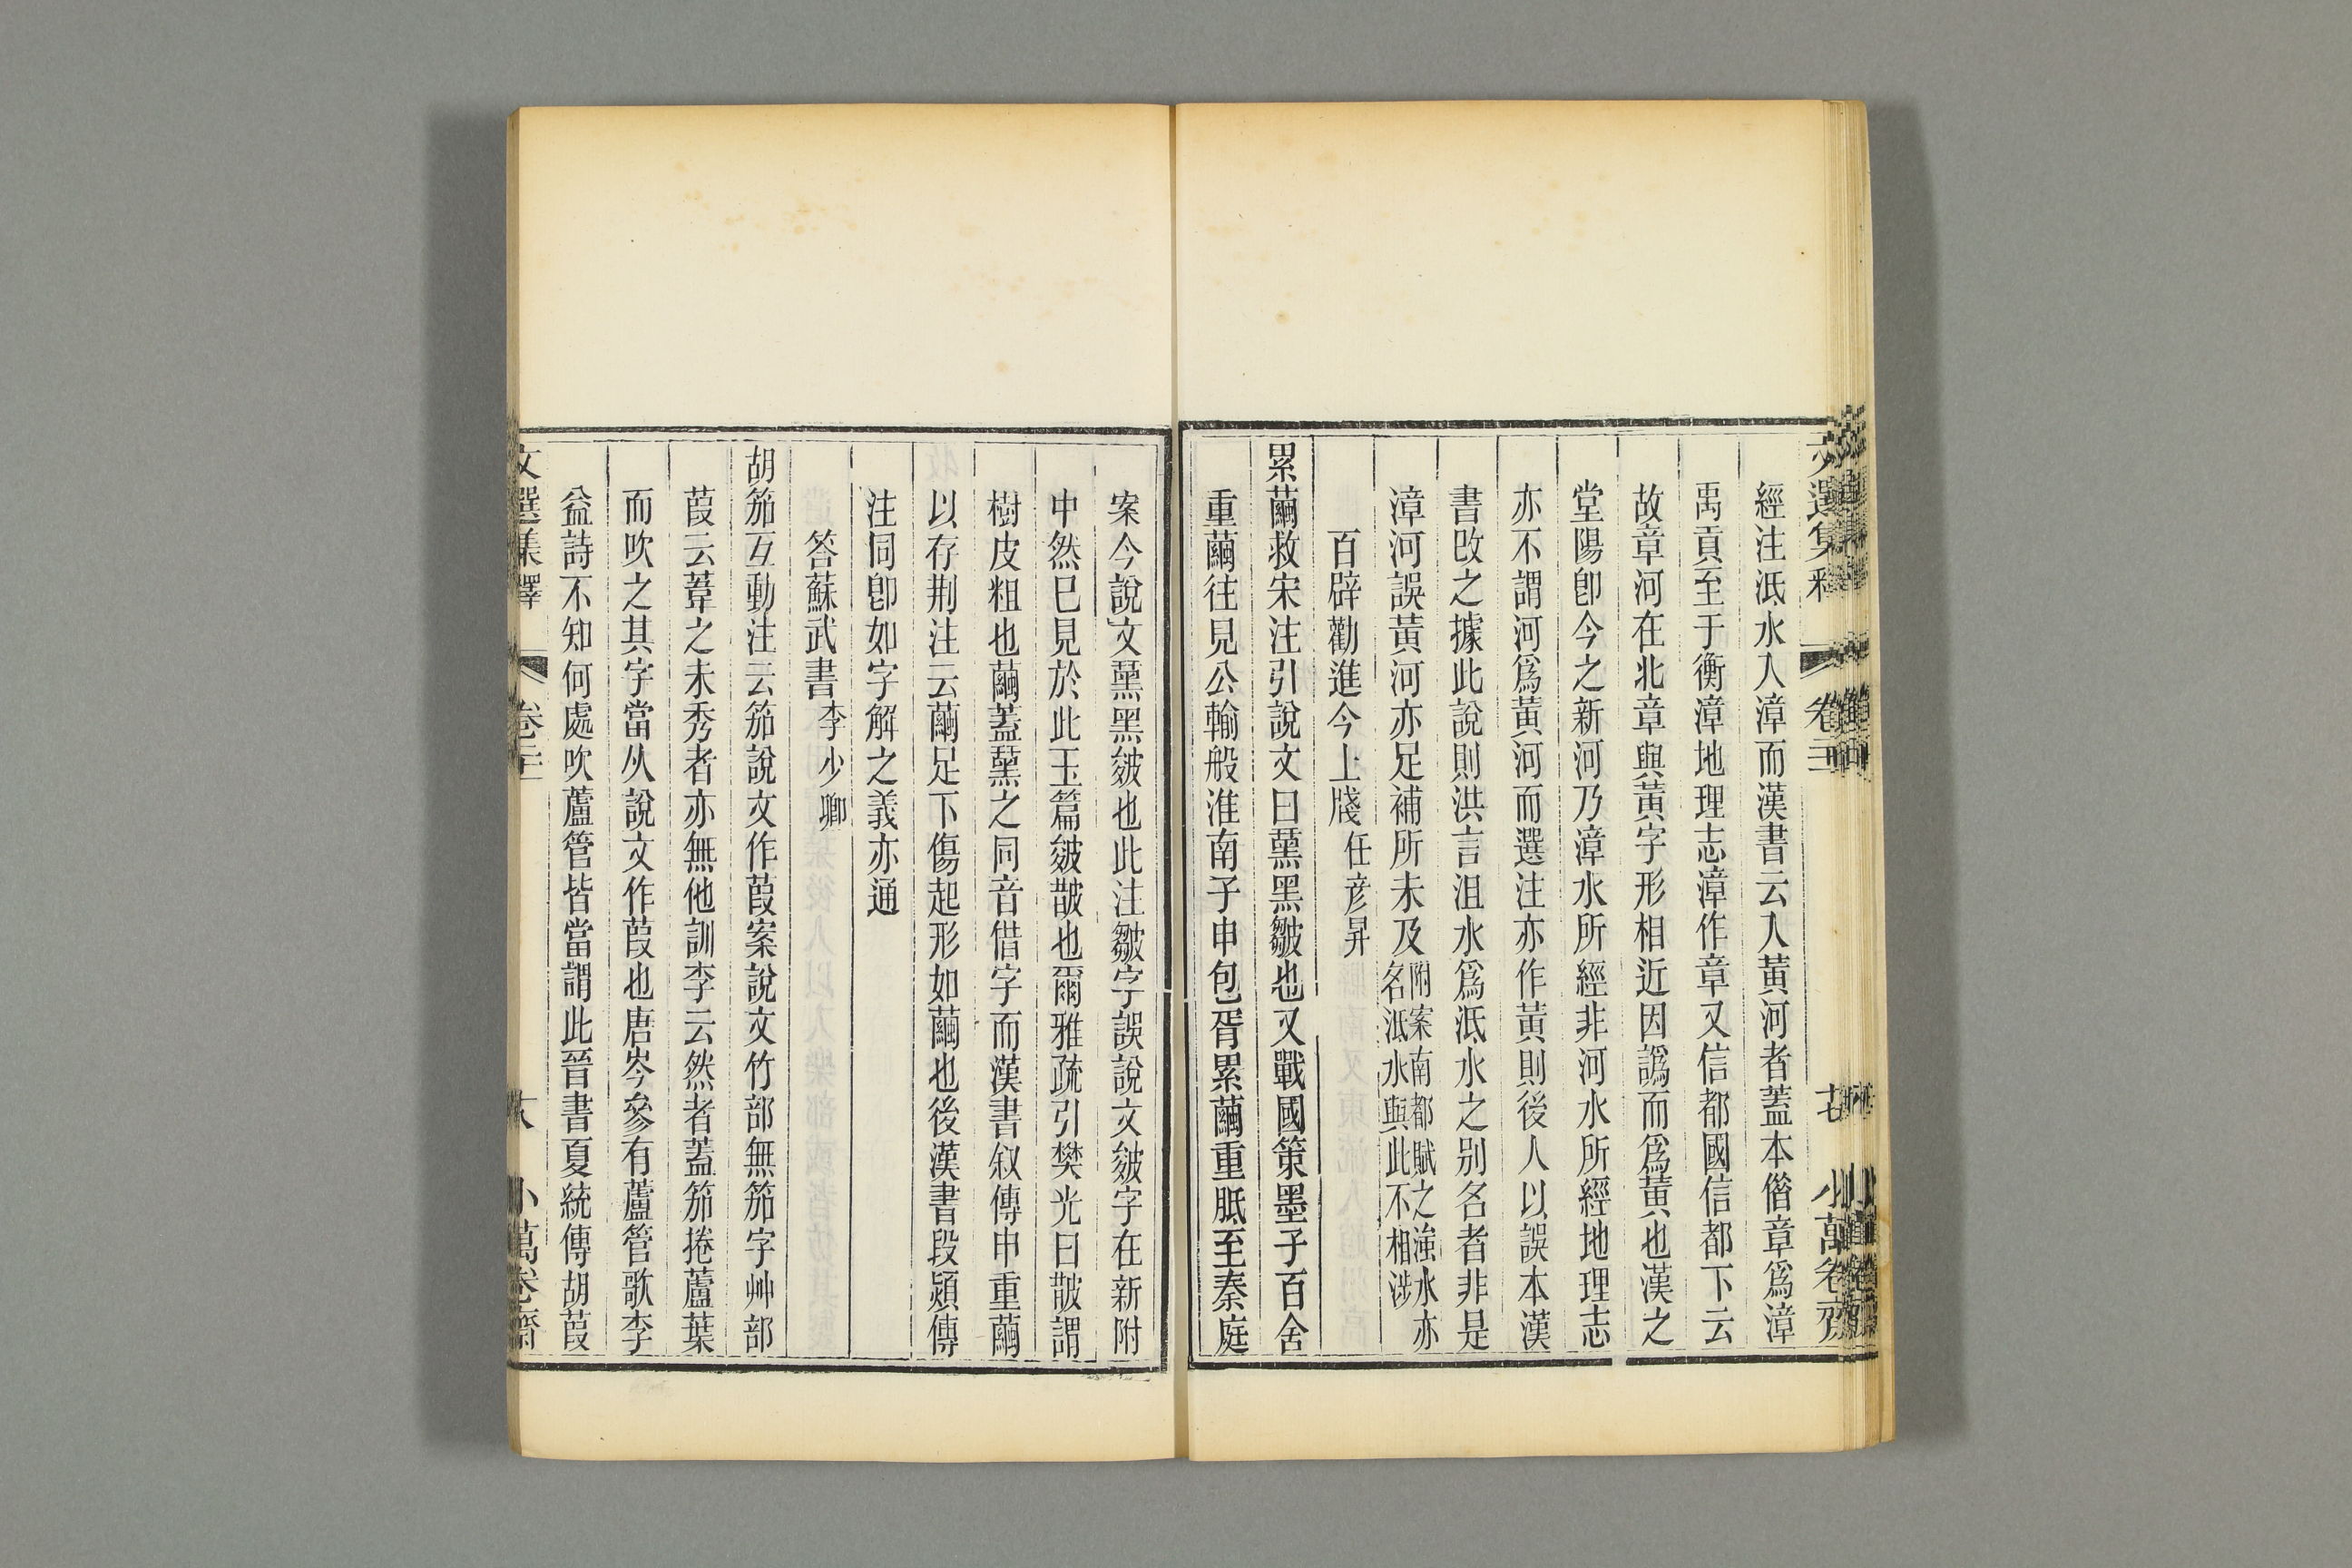 經注泜水入漳而漢書云入黃河者蓋本偕章爲漳
禹貢至于衡漳地理志漳作章又信都國信都下云
故章河在北章與黃字形相近因譌而爲黃也漢之
堂陽卽今之新河乃漳水所經非河水所經地理志
亦不謂河爲黃河而選注亦作黃則後人以誤本漢
書改之據此說則洪言沮水爲泜水之别名者非是
漳河誤黃河亦足補所未及附案南都賦之滍水亦名泜水與此不相涉
百辟勸進今上牋任彦昇
累繭救宋注引說文曰黑皺也又戰國策墨子百舍
重繭往見公輸般淮南子申包胥累繭重胝至秦庭
案今說文黑皴也此注皺字誤說文皴字在新附
中然巳見於此玉篇皴皵也爾雅疏引樊光曰皵謂
樹皮粗也繭蓋之同音借字而漢書叙傳申重繭
以存荆注云繭足下傷起形如繭也後漢書段熲傳
注同卽如字解之義亦通
答蘇武書李少卿
胡笳互動注云笳說文作葭案說文竹部無笳字艸部
葭云葦之未秀者亦無他訓李云然者蓋笳捲蘆葉
而吹之其字當从說文作葭也唐岑參有蘆管歌李
益詩不知何處吹蘆管皆當謂此晉書夏統傳胡葭
文選集釋 卷二十 大 小萬卷齋